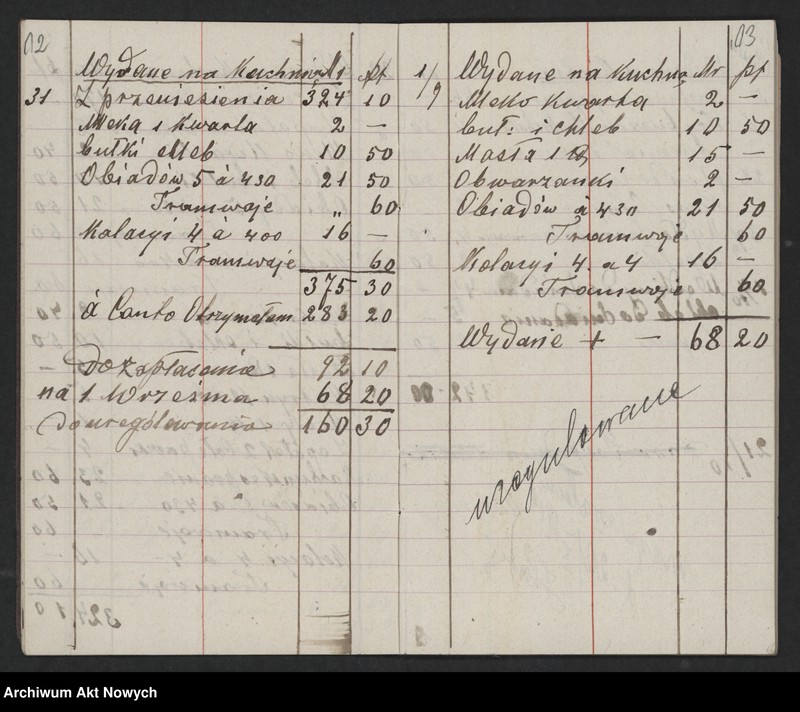 12
Wydane na Kuchnię Mr pf
31 Z przeniesienia 324 10
Mleka 1 Kwarta 2 —
bułki chleb 10 50
Obiadów 5 á 430 21 50
Tramwaje „ 60
Kolacyi 4 á 400 16 —
Tramwaje 60
375 30
á Conto Otrzymałam 283 20
do zapłacenia 92 10
na 1 Września 68 20
do urególowania 160 30
13
1/9 Wydane na Kuchnię Mr pf
Mleko Kwarta 2 —
buł: i chleb 10 50
Masła 1 15 —
Obwarzanki 2 —
Obiadów á 430 21 50
Tramwaje 60
Kolacyi 4 a 4 16 —
Tramwaje 60
Wydanie + — 68 20
uregulowane
Archiwum Akt Nowych